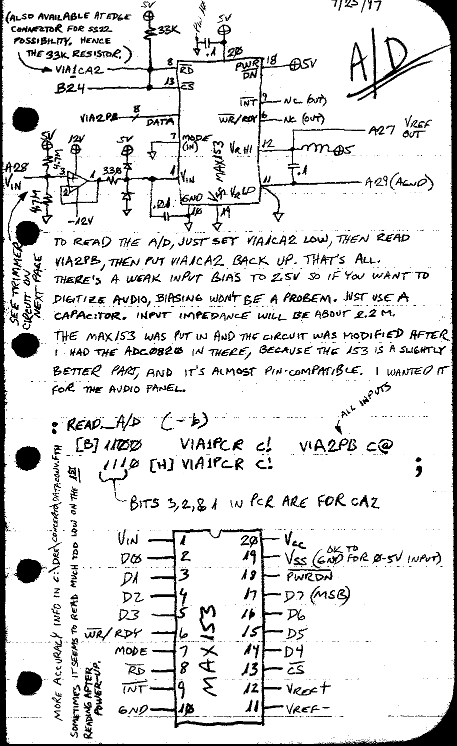 7/25/97
(ALSO AVAILABLE AT EDGE
CONNECTOR FOR SS22
POSSIBILITY, HENCE
THE 33K RESISTOR.)
5V
33K
5V
.1
20
A/D
VIA1CA2
8
RD
PWR
DN
18
5V
B24
13
CS
INT
9
NC (OUT)
VIA2PB
8
DATA
WR/RDY
6
NC (OUT)
7
MODE
(IN)
MAX153
VR HI
12
A27 VREF
OUT
5
.1
12V
5V
A28
VIN
4.7M
4.7M
3
2
1
330
1
VIN
GND
10
19
VR LO
11
A29 (AGND)
-12V
SEE TRIMMER
CIRCUIT ON
NEXT PAGE
TO READ THE A/D, JUST SET VIA1CA2 LOW, THEN READ
VIA2PB, THEN PUT VIA1CA2 BACK UP. THAT'S ALL.
THERE'S A WEAK INPUT BIAS TO 2.5V SO IF YOU WANT TO
DIGITIZE AUDIO, BIASING WON'T BE A PROBEM. JUST USE A
CAPACITOR. INPUT IMPEDANCE WILL BE ABOUT 2.2M.
THE MAX153 WAS PUT IN AND THE CIRCUIT WAS MODIFIED AFTER
I HAD THE ADC0820 IN THERE, BECAUSE THE 153 IS A SLIGHTLY
BETTER PART, AND IT'S ALMOST PIN-COMPATIBLE. I WANTED IT
FOR THE AUDIO PANEL.
ALL INPUTS
: READ_A/D ( -- b )
[B] 1100 VIA1PCR C! VIA2PB C@
1110 [H] VIA1PCR C! ;
BITS 3, 2, & 1 IN PCR ARE FOR CA2
MORE ACCURACY INFO IN
SOMETIMES IT SEEMS TO READ MUCH TOO LOW ON THE 1ST
READING AFTER
POWER-UP.
MAX153
VIN 1 20 VCC
D0 2 19 VSS (OK TO GND FOR 0-5V INPUT)
D1 3 18 PWRDN
D2 4 17 D7 (MSB)
D3 5 16 D6
WR/RDY 6 15 D5
MODE 7 14 D4
RD 8 13 CS
INT 9 12 VREF+
GND 10 11 VREF-